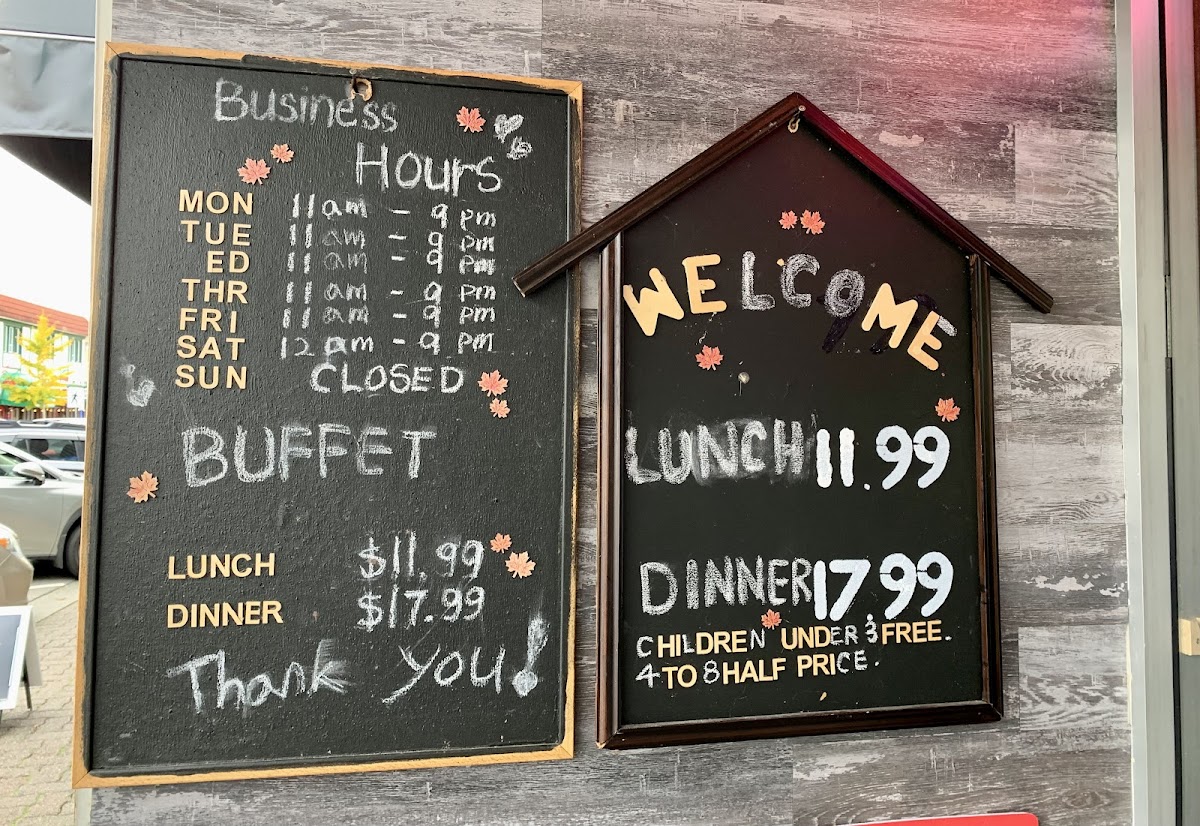 Business
Hours
MON 11am - 9 pm
TUE 11am - 9 pm
ED 11am - 9 pm
THR 11am - 9 pm
FRI 11am - 9 pm
SAT 12 pm - 9 pm
SUN CLOSED
BUFFET
LUNCH $11.99
DINNER $17.99
Thank you!
WELCOME
LUNCH 11.99
DINNER 17.99
CHILDREN UNDER 3 FREE.
4 TO 8 HALF PRICE.